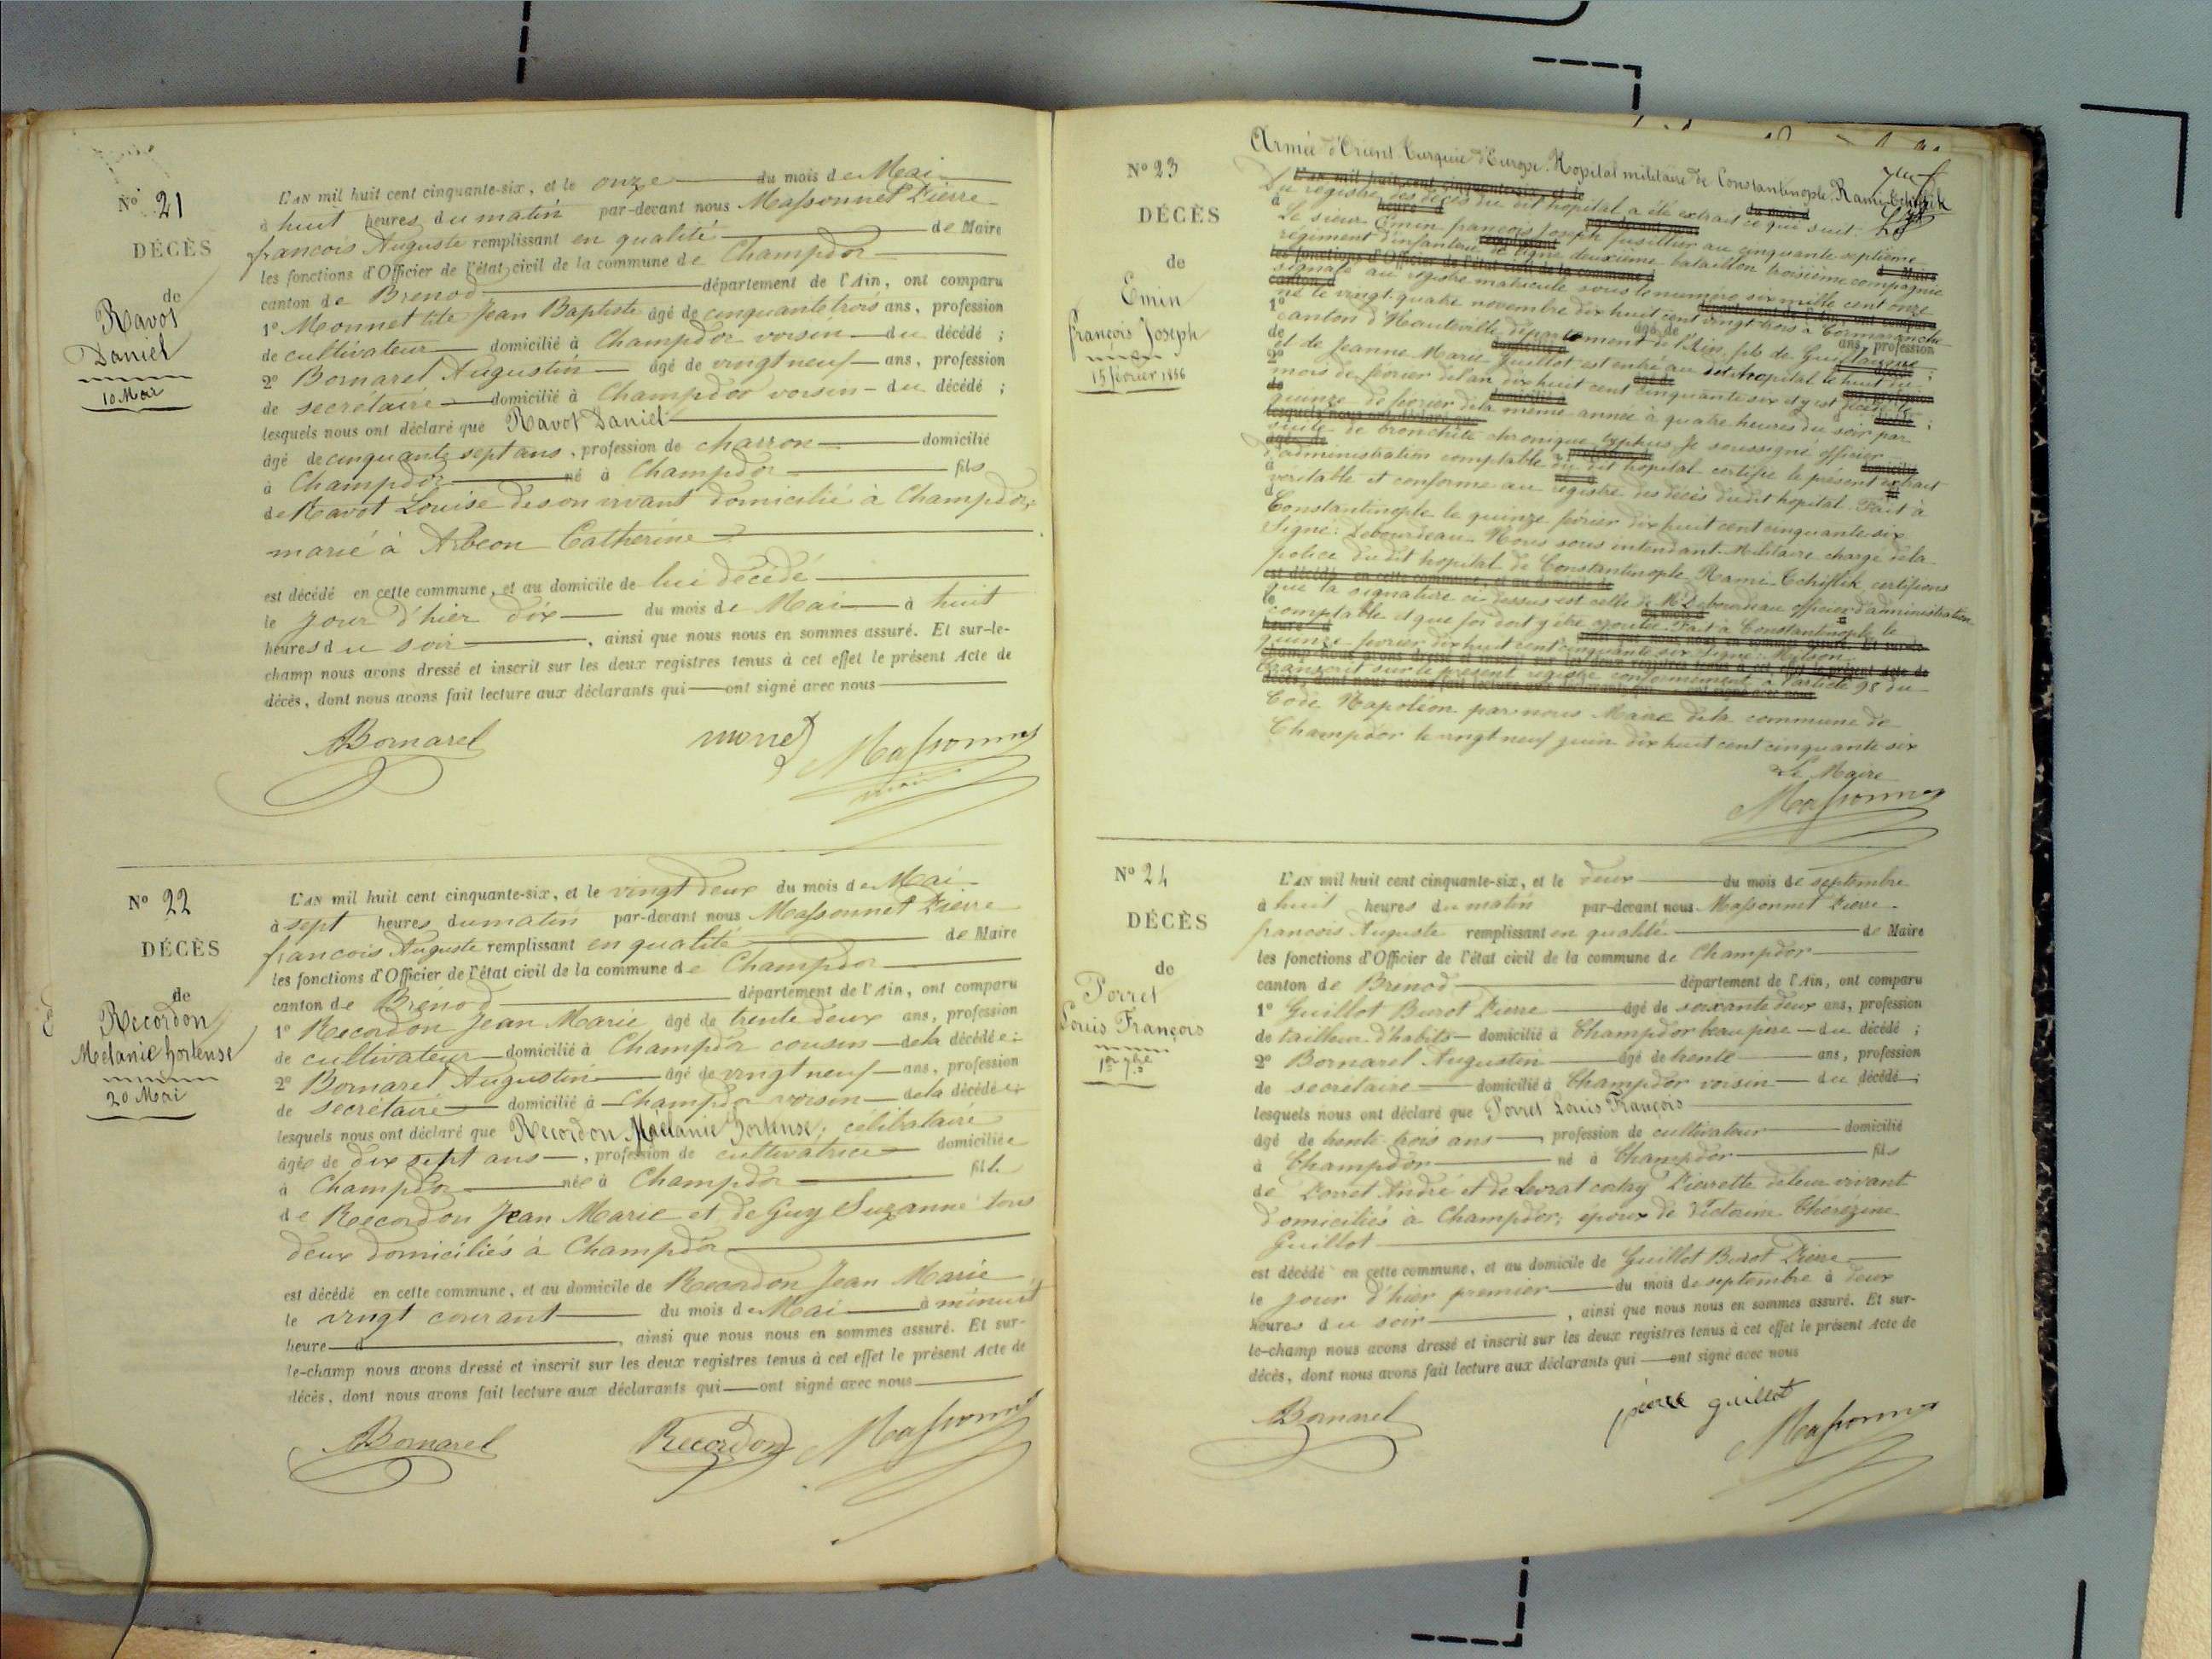 N° 21
DÉCÈS
de
Ravot
Daniel
10 Mai
L'AN mil huit cent cinquante-six, et le onze du mois de Mai
à huit heures du matin par-devant nous Massonnet Pierre
françois Auguste remplissant en qualité de Maire
les fonctions d'Officier de l'état civil de la commune de Champdor
canton de Brenod département de l'Ain, ont comparu
1° Monnet tité Jean Baptiste âgé de cinquante trois ans, profession
de cultivateur domicilié à Champdor voisin du décédé ;
2° Bornarel Augustin âgé de vingt neuf ans, profession
de secrétaire domicilié à Champdor voisin du décédé ;
lesquels nous ont déclaré que Ravot Daniel
âgé de cinquante sept ans, profession de charron domicilié
à Champdor né à Champdor fils
de Ravot Louise de son vivant domicilié à Champdor,
marié à Arbeon Catherine
est décédé en cette commune, et au domicile de lui décédé
le jour d'hier dix du mois de Mai à huit
heures du soir, ainsi que nous nous en sommes assuré. Et sur-le-
champ nous avons dressé et inscrit sur les deux registres tenus à cet effet le présent Acte de
décès, dont nous avons fait lecture aux déclarants qui ont signé avec nous
ABornarel monnet Massonnet
maire
N° 22
DÉCÈS
de
Recordon
Mélanie hortense
20 Mai
L'AN mil huit cent cinquante-six, et le vingt deux du mois de Mai
à sept heures du matin par-devant nous Massonnet Pierre
françois Auguste remplissant en qualité de Maire
les fonctions d'Officier de l'état civil de la commune de Champdor
canton de Brénod département de l'Ain, ont comparu
1° Recordon Jean Marie âgé de trente deux ans, profession
de cultivateur domicilié à Champdor cousin de la décédée ;
2° Bornarel Augustin âgé de vingt neuf ans, profession
de secrétaire domicilié à Champdor voisin de la décédée ;
lesquels nous ont déclaré que Recordon Maelanie hortense, célibataire
âgée de dix sept ans, profession de cultivatrice domiciliée
à Champdor née à Champdor fille
de Recordon Jean Marie et de Guy Suzanne tous
deux domiciliés à Champdor
est décédé en cette commune, et au domicile de Recordon Jean Marie
le vingt courant du mois de Mai à minuit
heure d , ainsi que nous nous en sommes assuré. Et sur-
le-champ nous avons dressé et inscrit sur les deux registres tenus à cet effet le présent Acte de
décès, dont nous avons fait lecture aux déclarants qui ont signé avec nous
ABornarel Recordon Massonnet
N° 23
DÉCÈS
de
Emin
françois Joseph
15 février 1856
Armée d'Orient Turquie d'Europe. Hopital militaire de Constantinople. Rami Tchiflik
Du registre des décès du dit hopital a été extrait ce qui suit.
Le sieur Emin françois Joseph fusillier au cinquante septième
régiment d'infanterie de ligne deuxième bataillon troisième compagnie
signalé au registre matricule sous le numéro six mille cent onze
né le vingt quatre novembre dix huit cent vingt trois à Cormaranche
canton d'Hauteville département de l'Ain, fils de Guillaume
et de Jeanne Marie Guillot est entré au dit hopital le huit du
mois de février de l'an dix huit cent cinquante six et y est décédé le
quinze de février de la même année à quatre heures du soir par
suite de bronchite chronique typhus, Je soussigné officier
d'administration comptable du dit hopital certifie le présent extrait
véritable et conforme au registre des décès du dit hopital. Fait à
Constantinople le quinze février dix huit cent cinquante six
Signé: Debourdeau. Nous sous intendant Militaire chargé de la
police du dit hopital de Constantinople Rami Tchiflik certifions
que la signature ci dessus est celle de Mr Debourdeau officier d'administration
comptable et que foi doit y être ajoutée. Fait à Constantinople le
quinze février dix huit cent cinquante six Signé:
Transcrit sur le présent registre conformément à l'article 98 du
Code Napoléon par nous Maire de la commune de
Champdor le vingt neuf juin dix huit cent cinquante six
Le Maire
Massonnet
N° 24
DÉCÈS
de
Porret
Louis François
1er 7bre
L'AN mil huit cent cinquante-six, et le deux du mois de septembre
à huit heures du matin par-devant nous Massonnet Pierre
francois Auguste remplissant en qualité de Maire
les fonctions d'Officier de l'état civil de la commune de Champdor
canton de Brénod département de l'Ain, ont comparu
1° Guillot Burot Pierre âgé de soixante deux ans, profession
de tailleur d'habits domicilié à Champdor beau père du décédé ;
2° Bornarel Augustin âgé de trente ans, profession
de secrétaire domicilié à Champdor voisin du décédé ;
lesquels nous ont déclaré que Porret Louis François
âgé de trente trois ans, profession de cultivateur domicilié
à Champdor né à Champdor fils
de Porret André et de Levrat Pierrette de leur vivant
domiciliés à Champdor, époux de Victorine Thérézine
Guillot
est décédé en cette commune, et au domicile de Guillot Burot Pierre
le jour d'hier premier du mois de septembre à deux
heures du soir, ainsi que nous nous en sommes assuré. Et sur-
le-champ nous avons dressé et inscrit sur les deux registres tenus à cet effet le présent Acte de
décès, dont nous avons fait lecture aux déclarants qui ont signé avec nous
Bornarel pierre guillot Massonnet